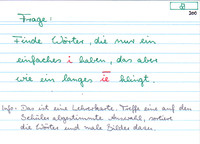 300
Frage:
Finde Wörter, die nur ein
einfaches i haben, das aber
wie ein langes ie klingt.
Info: Das ist eine Lehrerkarte. Treffe eine auf den
Schüler abgestimmte Auswahl, sortiere
die Wörter und male Bilder dazu.